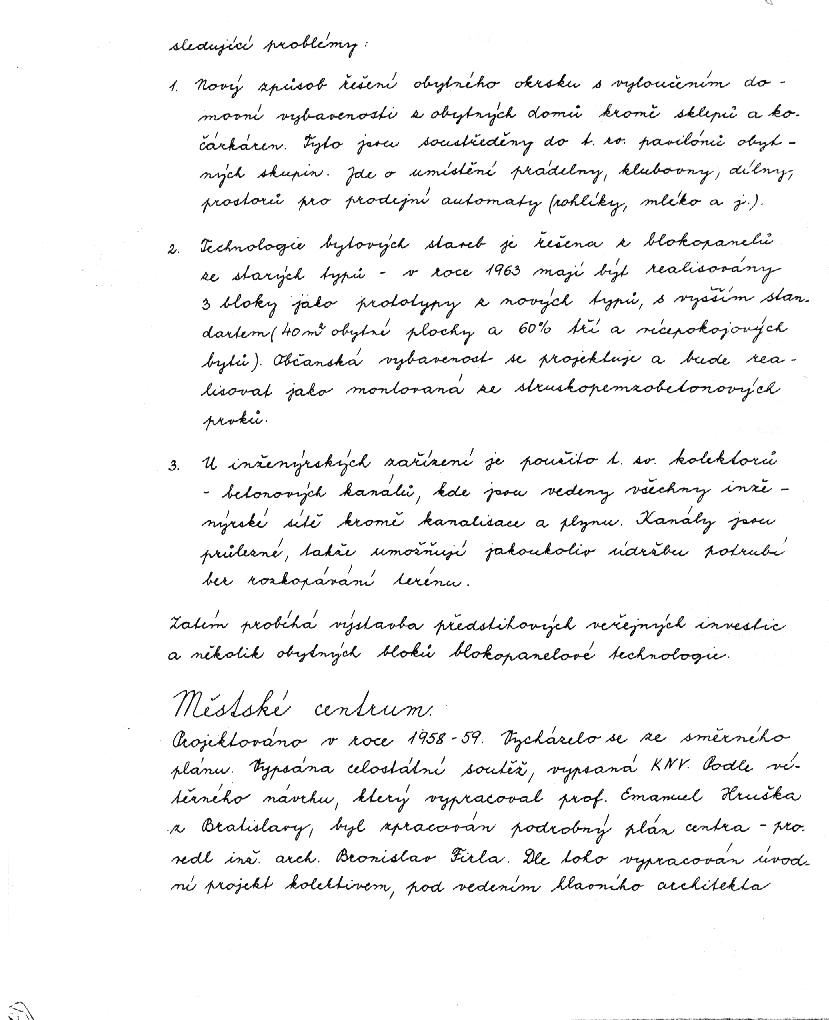 sledující problémy:
1. Nový způsob řešení obytného okrsku s vyloučením do-
movní vybavenosti z obytných domů kromě sklepů a ko-
čárkáren. Tyto jsou soustředěny do t. zv. pavilónů obyt-
ných skupin. Jde o umístění prádelny, klubovny, dílny,
prostorů pro prodejní automaty (rohlíky, mléko a j.).
2. Technologie bytových staveb je řešena z blokopanelů
ze starých typů - v roce 1963 mají být realisovány
3 bloky jako prototypy z nových typů, s vyšším stan-
dartem (40 m² obytné plochy a 60% tří a vícepokojových
bytů). Občanská vybavenost se projektuje a bude rea-
lisovat jako montovaná ze struskopemzobetonových
prvků.
3. U inženýrských zařízení je použito t. zv. kolektorů
- betonových kanálů, kde jsou vedeny všechny inže-
nýrské sítě kromě kanalisace a plynu. Kanály jsou
průlezné, takže umožňují jakoukoliv údržbu potrubí
bez rozkopávání terénu.
Zatím probíhá výstavba předstihových veřejných investic
a několik obytných bloků blokopanelové technologie.
Městské centrum.
Projektováno v roce 1958-59. Vycházelo se ze směrného
plánu. Vypsána celostátní soutěž, vypsaná KNV. Podle ví-
tězného návrhu, který vypracoval prof. Emanuel Hruška
z Bratislavy, byl zpracován podrobný plán centra - pro-
vedl inž. arch. Bronislav Firla. Dle toho vypracován úvod-
ní projekt kolektivem, pod vedením hlavního architekta